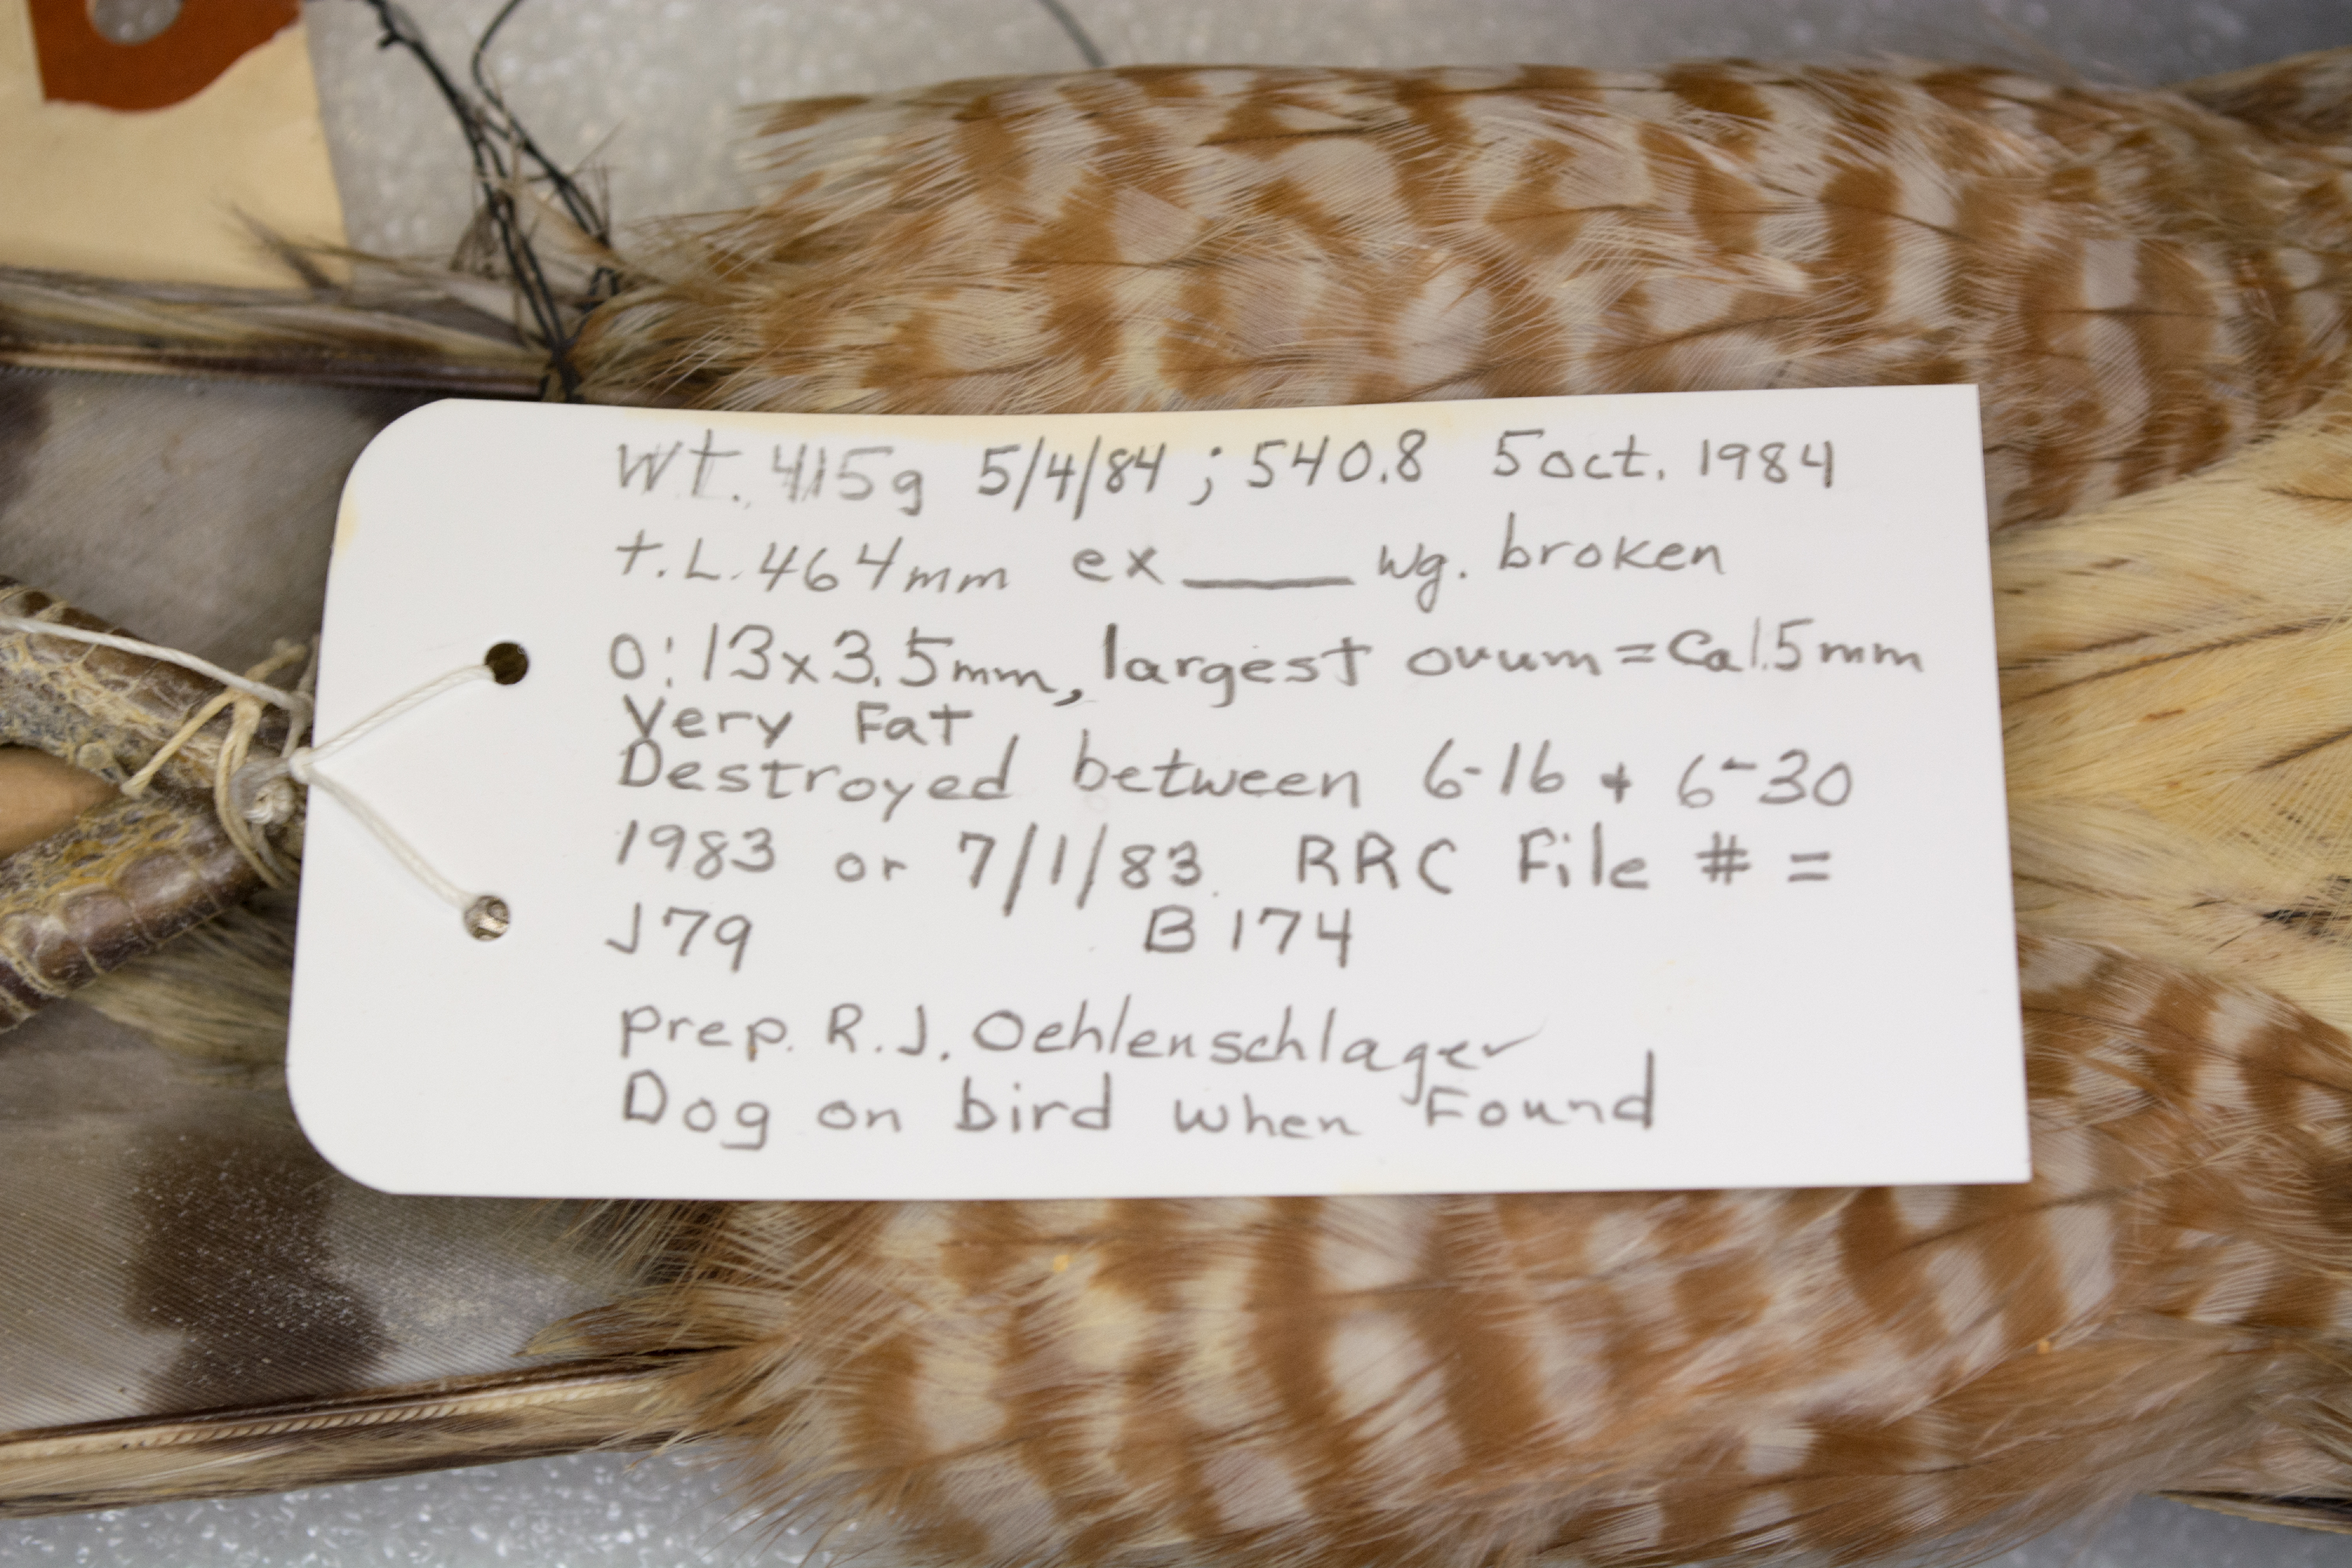 Wt. 415g 5/4/84 ; 540.8 5 oct. 1984
t.L. 464mm ex ____ wg. broken
O: 13x3.5mm, largest ovum = Ca 1.5mm
Very Fat
Destroyed between 6-16 + 6-30
1983 or 7/1/83. RRC File # =
J79 B174
prep. R.J. Oehlenschlager
Dog on bird when Found